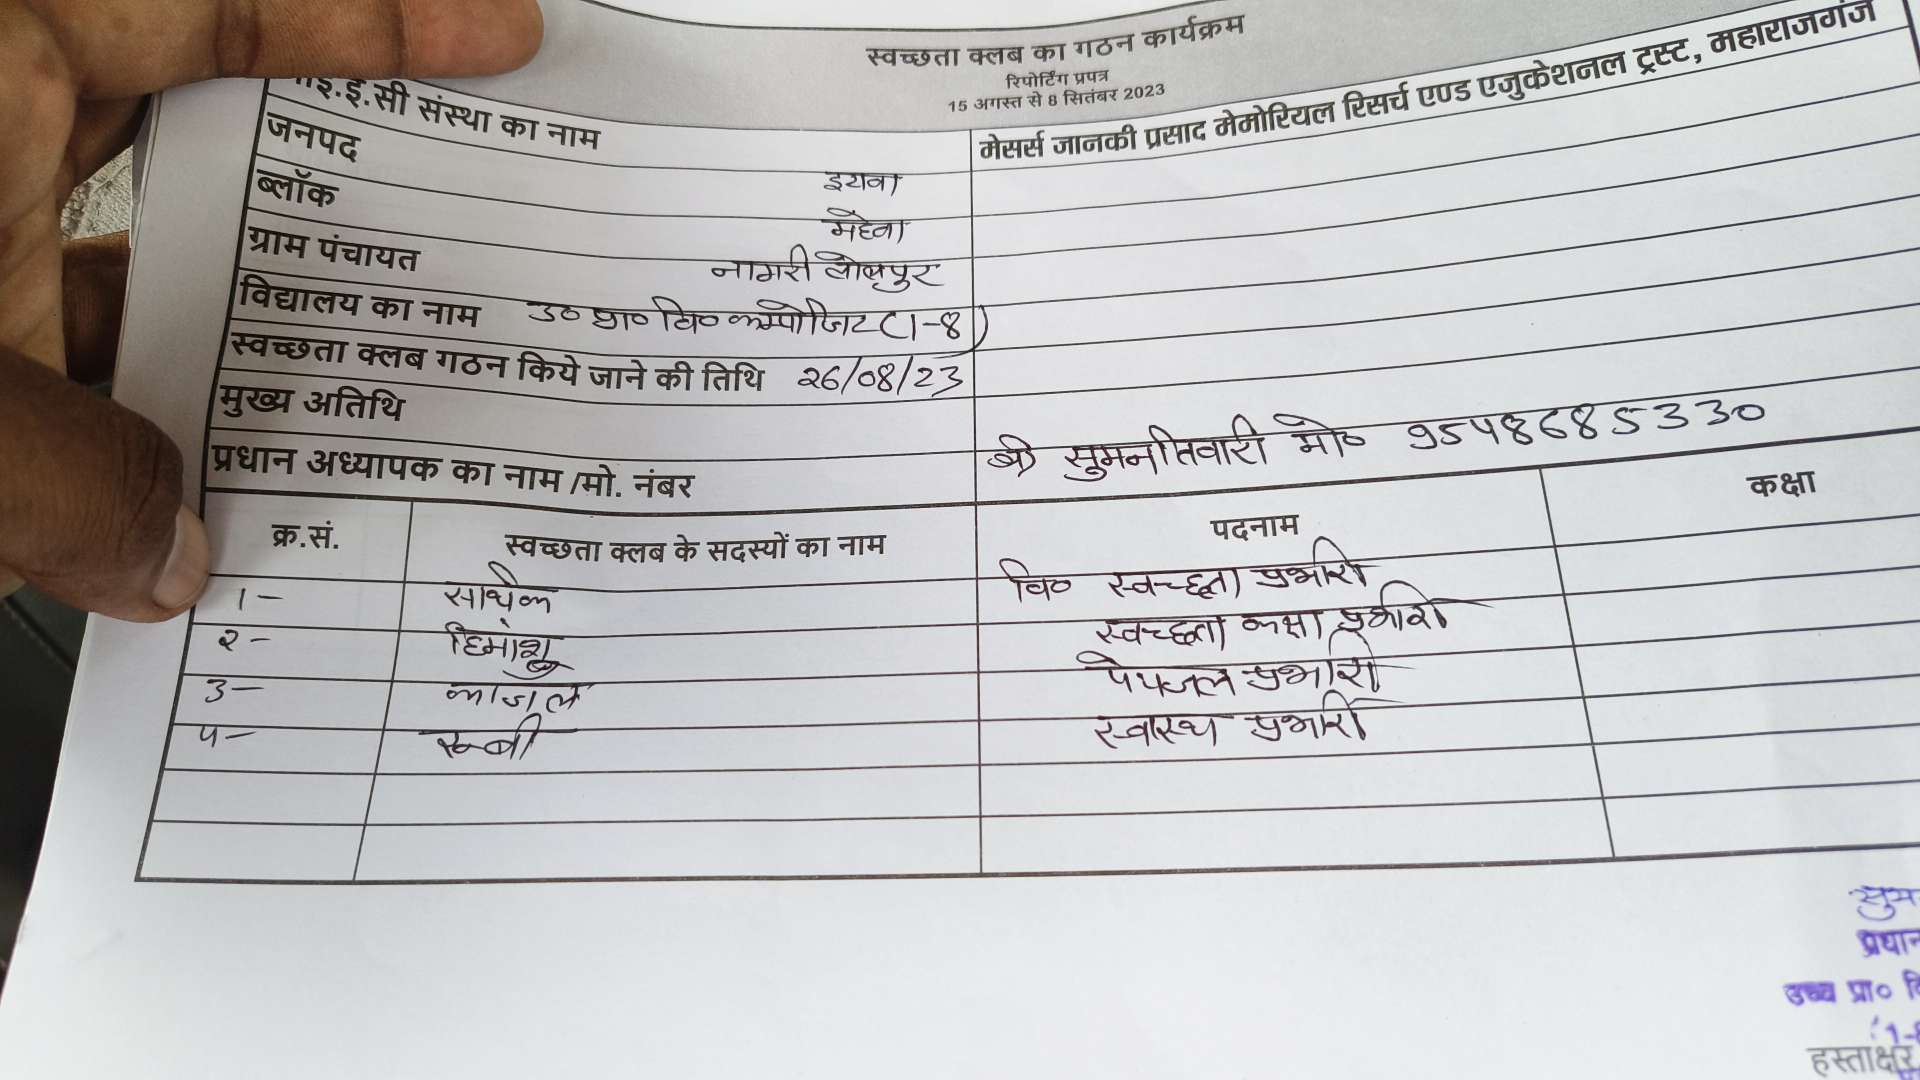 स्वच्छता क्लब का गठन कार्यक्रम
रिपोर्टिंग प्रपत्र
15 अगस्त से 8 सितंबर 2023
इ.ई.सी संस्था का नाम मेसर्स जानकी प्रसाद मेमोरियल रिसर्च एण्ड एजुकेशनल ट्रस्ट, महाराजगंज
जनपद
ब्लॉक
ग्राम पंचायत नागरी
विद्यालय का नाम उ० प्रा० वि० कम्पोजिट (1-8)
स्वच्छता क्लब गठन किये जाने की तिथि 26/08/23
मुख्य अतिथि
प्रधान अध्यापक का नाम /मो. नंबर सुमन तिवारी मो० 9548685330
क्र.सं. स्वच्छता क्लब के सदस्यों का नाम पदनाम कक्षा
1- सार्थक वि० स्वच्छता प्रभारी
२- हिमांशु स्वच्छता कक्षा प्रभारी
3- काजल पेयजल प्रभारी
५- रूबी स्वास्थ प्रभारी
सुम
प्रधान
उच्च प्रा० वि
(1-8
हस्ताक्षर